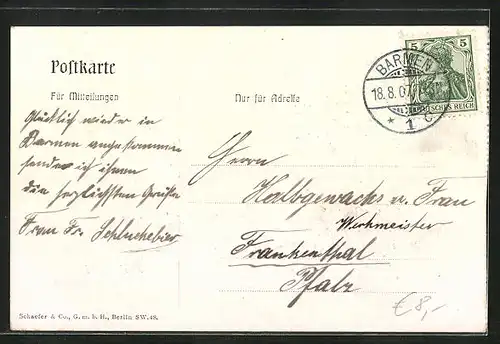 Postkarte
Für Mitteilungen
Nur für Adresse
Glücklich wieder in
Barmen angekommen
sende ich ihnen
die herzlichsten Grüße
Frau Fr. Schluckebier
Herrn
Halbgewachs u. Frau
Werkmeister
Frankenthal
Pfalz
BARMEN
18.8.07
* 1 c
5 5
DEUTSCHES REICH
Schaefer & Co., G. m. b. H., Berlin SW. 48.
€ 8,-